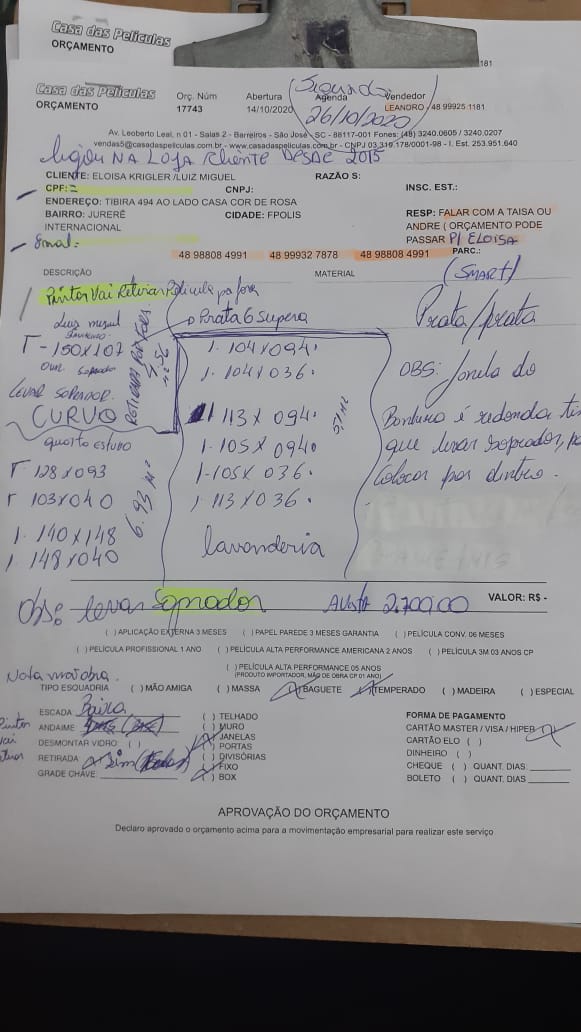 Casa das Películas
ORÇAMENTO
181
Casa das Películas
ORÇAMENTO
Orç. Núm
17743
Abertura
14/10/2020
Segunda
Agenda
26/10/2020
Vendedor
LEANDRO - 48 99925 1181
Av. Leoberto Leal, n 01 - Salas 2 - Barreiros - São José - SC - 88117-001 Fones: (48) 3240.0605 / 3240.0207
vendas5@casadaspeliculas.com.br - www.casadaspeliculas.com.br - CNPJ 03.319.178/0001-98 - I. Est. 253.951.640
Ligou NA LOJA Cliente DESDE 2015
CLIENTE: ELOISA KRIGLER /LUIZ MIGUEL
RAZÃO S:
CPF:
CNPJ:
INSC. EST.:
ENDEREÇO: TIBIRA 494 AO LADO CASA COR DE ROSA
BAIRRO: JURERÊ INTERNACIONAL
CIDADE: FPOLIS
RESP: FALAR COM A TAISA OU
ANDRE ( ORÇAMENTO PODE
PASSAR P/ ELOISA
Email:
48 98808 4991
48 99932 7878
48 98808 4991
PARC.:
(SMART)
DESCRIÇÃO
MATERIAL
Pintor Vai Retirar Película por fora
Prata 6 supera
Prata/prata
Luiz miguel
150X107
LEVAR SOPRADOR
CURVO
RETIRADA POR FORA
quarto estudo
128X093
103X040
1. 140X148
1. 148X040
6.93 m²
1. 104X094.
1. 104X036.
1 113X094.
1. 105X094.
1-105X036.
1 113X036.
lavanderia
OBS: Janela do
Banheiro é redonda tem
que levar soprador, p
colocar por dentro.
Obs: levar Soprador
Avista 2.700,00
VALOR: R$ -
( ) APLICAÇÃO EXTERNA 3 MESES ( ) PAPEL PAREDE 3 MESES GARANTIA ( ) PELÍCULA CONV. 06 MESES
( ) PELÍCULA PROFISSIONAL 1 ANO ( ) PELÍCULA ALTA PERFORMANCE AMERICANA 2 ANOS ( ) PELÍCULA 3M 03 ANOS CP
( ) PELÍCULA ALTA PERFORMANCE 05 ANOS
(PRODUTO IMPORTADOR, MÃO DE OBRA CP 01 ANO)
TIPO ESQUADRIA ( ) MÃO AMIGA ( ) MASSA (X) BAGUETE (X) TEMPERADO ( ) MADEIRA ( ) ESPECIAL
ESCADA Baixa
ANDAIME
DESMONTAR VIDRO: ( )
RETIRADA Sim
GRADE CHAVE
Pintor
vai
( ) TELHADO
( ) MURO
(X) JANELAS
( ) PORTAS
( ) DIVISÓRIAS
(X) FIXO
(X) BOX
FORMA DE PAGAMENTO
CARTÃO MASTER / VISA / HIPER (X)
CARTÃO ELO ( )
DINHEIRO ( )
CHEQUE ( ) QUANT. DIAS
BOLETO ( ) QUANT. DIAS
APROVAÇÃO DO ORÇAMENTO
Declaro aprovado o orçamento acima para a movimentação empresarial para realizar este serviço